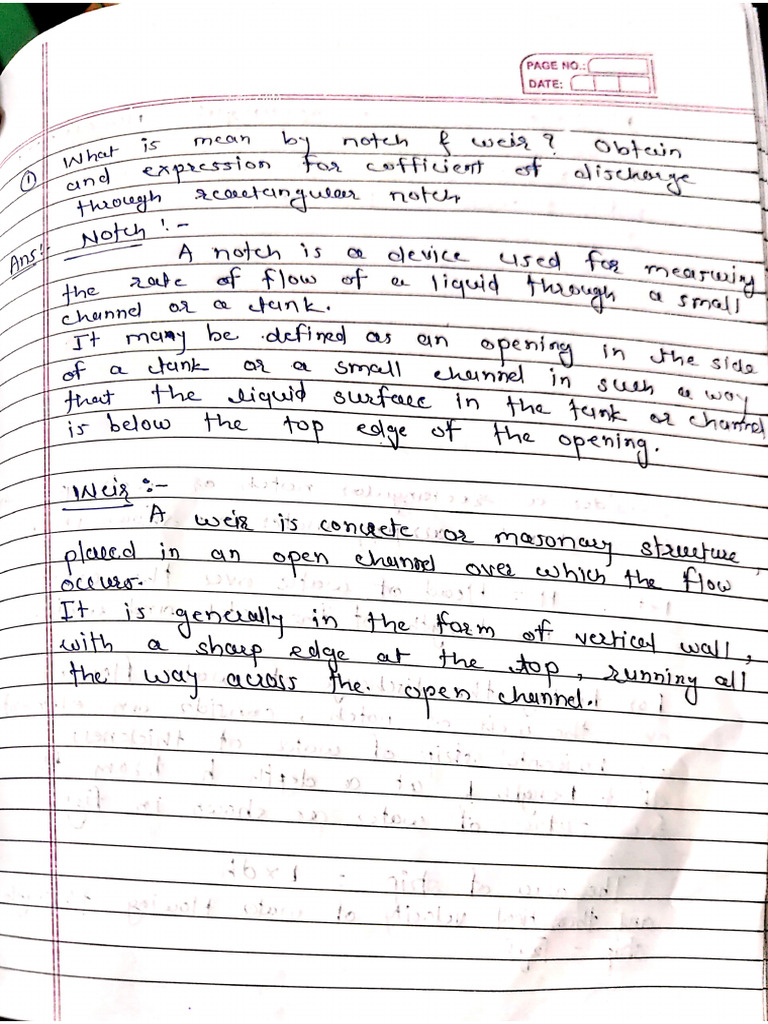 PAGE NO.:
DATE:
① What is mean by notch & weir? Obtain
and expression for cofficient of discharge
through reactangular notch,
Ans:- Notch :-
A notch is a device used for measuring
the rate of flow of a liquid through a small
channel or a tank.
It may be defined as an opening in the side
of a tank or a small channel in such a way
that the liquid surface in the tank or channel
is below the top edge of the opening.
Weir :-
A weir is concrete or masonary structure,
placed in an open channel over which the flow
occurs.
It is generally in the form of vertical wall,
with a sharp edge at the top, running all
the way across the open channel.